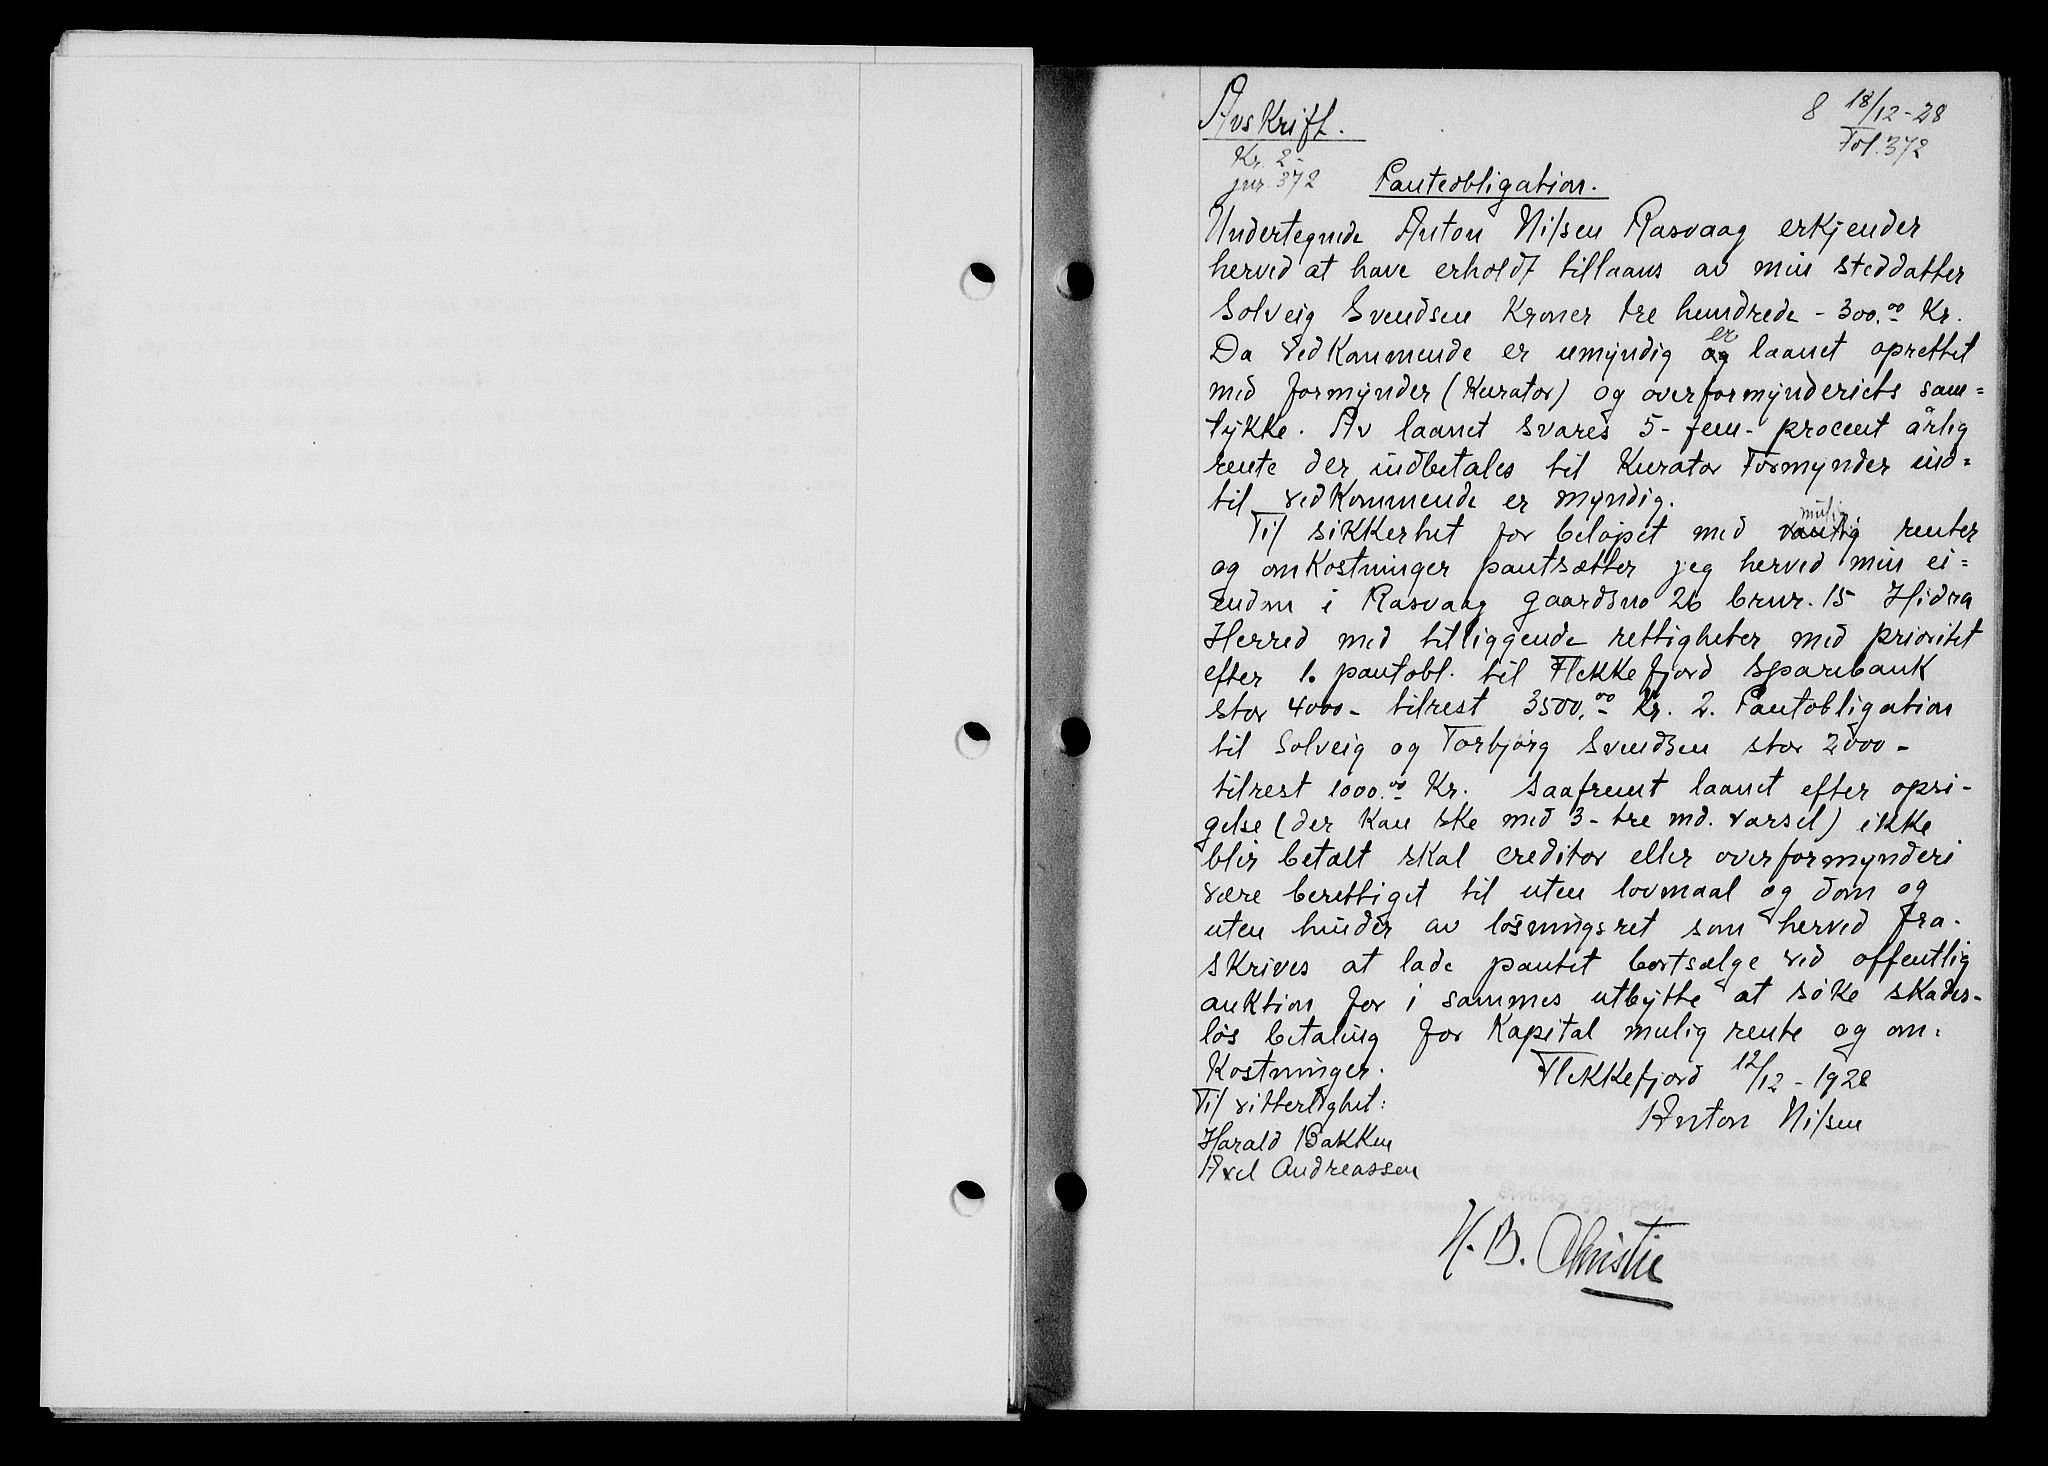 Avskrift.
8 18/12-28
Fol. 372
Kr. 2-
jnr. 372
Panteobligation.
Undertegnede Anton Nilsen Rasvaag erkjender
herved at have erholdt tillaans av min steddatter
Solveig Svendsen Kroner tre hundrede - 300.00 Kr.
Da vedkommende er umyndig og er laanet oprettet
med formynder (Kurator) og overformynderiets sam=
tykke. Av laanet svares 5- fem- procent årlig
rente der indbetales til Kurator Formynder ind=
til vedkommende er myndig.
Til sikkerhet for beløpet med vanlig mulig renter
og omkostninger pantsætter jeg herved min ei=
endom i Rasvaag gaardsno 26 brnr. 15 Hidra
Herred med tilliggende rettigheter med prioritet
efter 1. pantobl. til Flekkefjord Sparebank
stor 4000- tilrest 3500.00 Kr. 2. Pantobligation
til Solveig og Torbjørg Svendsen stor 2000-
tilrest 1000.00 Kr. Saafremt laanet efter opsi-
gelse (der kan ske med 3- tre md. varsel) ikke
blir betalt skal creditor eller overformynderi
være berettiget til uten lovmaal og dom og
uten hinder av løsningsret som herved fra-
skrives at lade pantet bortsælge ved offentlig
auktion for i sammes utbytte at søke skades-
løs betaling for Kapital mulig rente og om=
kostninger.
Flekkefjord 12/12-1928
Til vitterlighet:
Anton Nilsen
Harald Bakken
Axel Andreassen
H. B. Christie